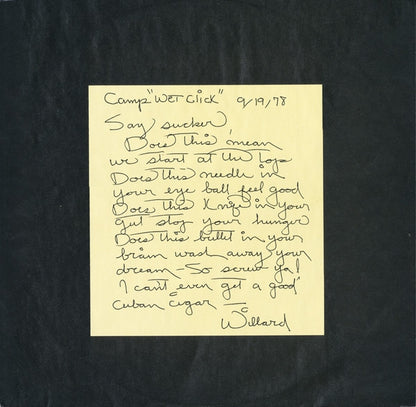 Camp "WET Click" 9/19/78
Say sucker
Does this mean
we start at the top
Does this needle in
your eye ball feel good
Does this Knife in your
gut stop your hunger
Does this bullit in your
brain wash away your
dream - So screw ya!
I can't even get a good
Cuban cigar —
Willard